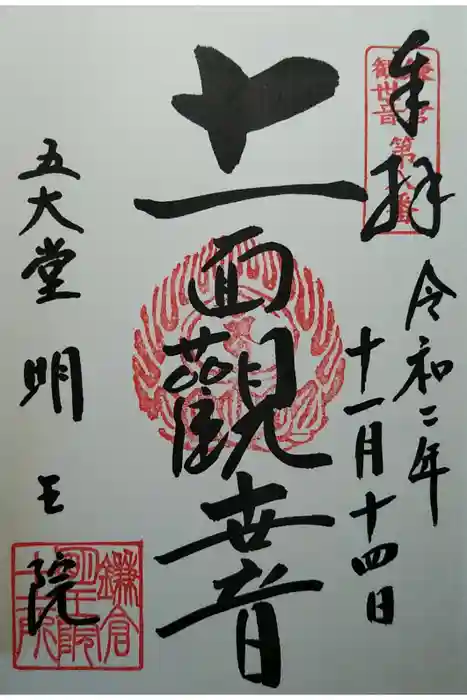 奉拝
鎌倉
観世音
第八番
令和二年
十一月十四日
十一面觀世音
五大堂 明王院
鎌倉
明王院